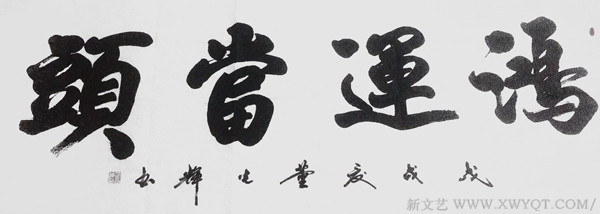 鴻運當頭
戊戌夏董生輝書
新文艺 WWW.XWYQT.COM